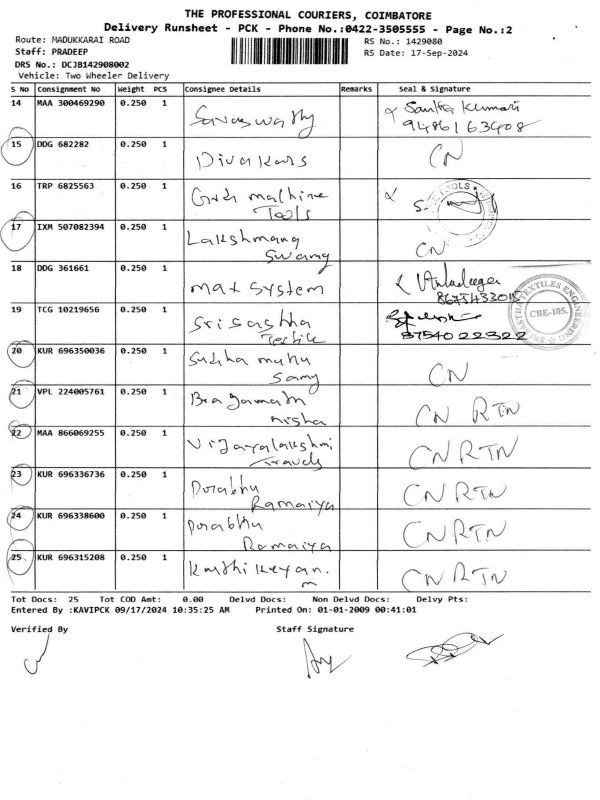 THE PROFESSIONAL COURIERS, COIMBATORE
Delivery Runsheet - PCK - Phone No.:0422-3505555 - Page No.:2
Route: MADUKKARAI ROAD
RS No.: 1429080
Staff: PRADEEP
RS Date: 17-Sep-2024
DRS No.: DCJB142908002
Vehicle: Two Wheeler Delivery
S No Consignment No Weight PCS Consignee Details Remarks Seal & Signature
14 MAA 300469290 0.250 1 Saraswathy Santha Kumari
9486163408
15 DDG 682282 0.250 1 Divakars CN
16 TRP 6825563 0.250 1 machine
Tools
TOOLS
17 IXM 507082394 0.250 1 Lakshmana
Swamy CN
18 DDG 361661 0.250 1 max system
19 TCG 10219656 0.250 1 Sri sastha
Textile
8754022322
SRI SASTHA TEXTILES ENGINEERING
CBE-105.
20 KUR 696350036 0.250 1 Sudha muthu
Samy CN
21 VPL 224005761 0.250 1 CN RTN
nisha
22 MAA 866069255 0.250 1 Vijayalakshmi
Travels CN RTN
23 KUR 696336736 0.250 1 Durabhu
Ramaiya CN RTN
24 KUR 696338600 0.250 1 Durabhu
Ramaiya CN RTN
25 KUR 696315208 0.250 1 Karthikeyan.
m CN RTN
Tot Docs: 25 Tot COD Amt: 0.00 Delvd Docs: Non Delvd Docs: Delvy Pts:
Entered By :KAVIPCK 09/17/2024 10:35:25 AM Printed On: 01-01-2009 00:41:01
Verified By Staff Signature